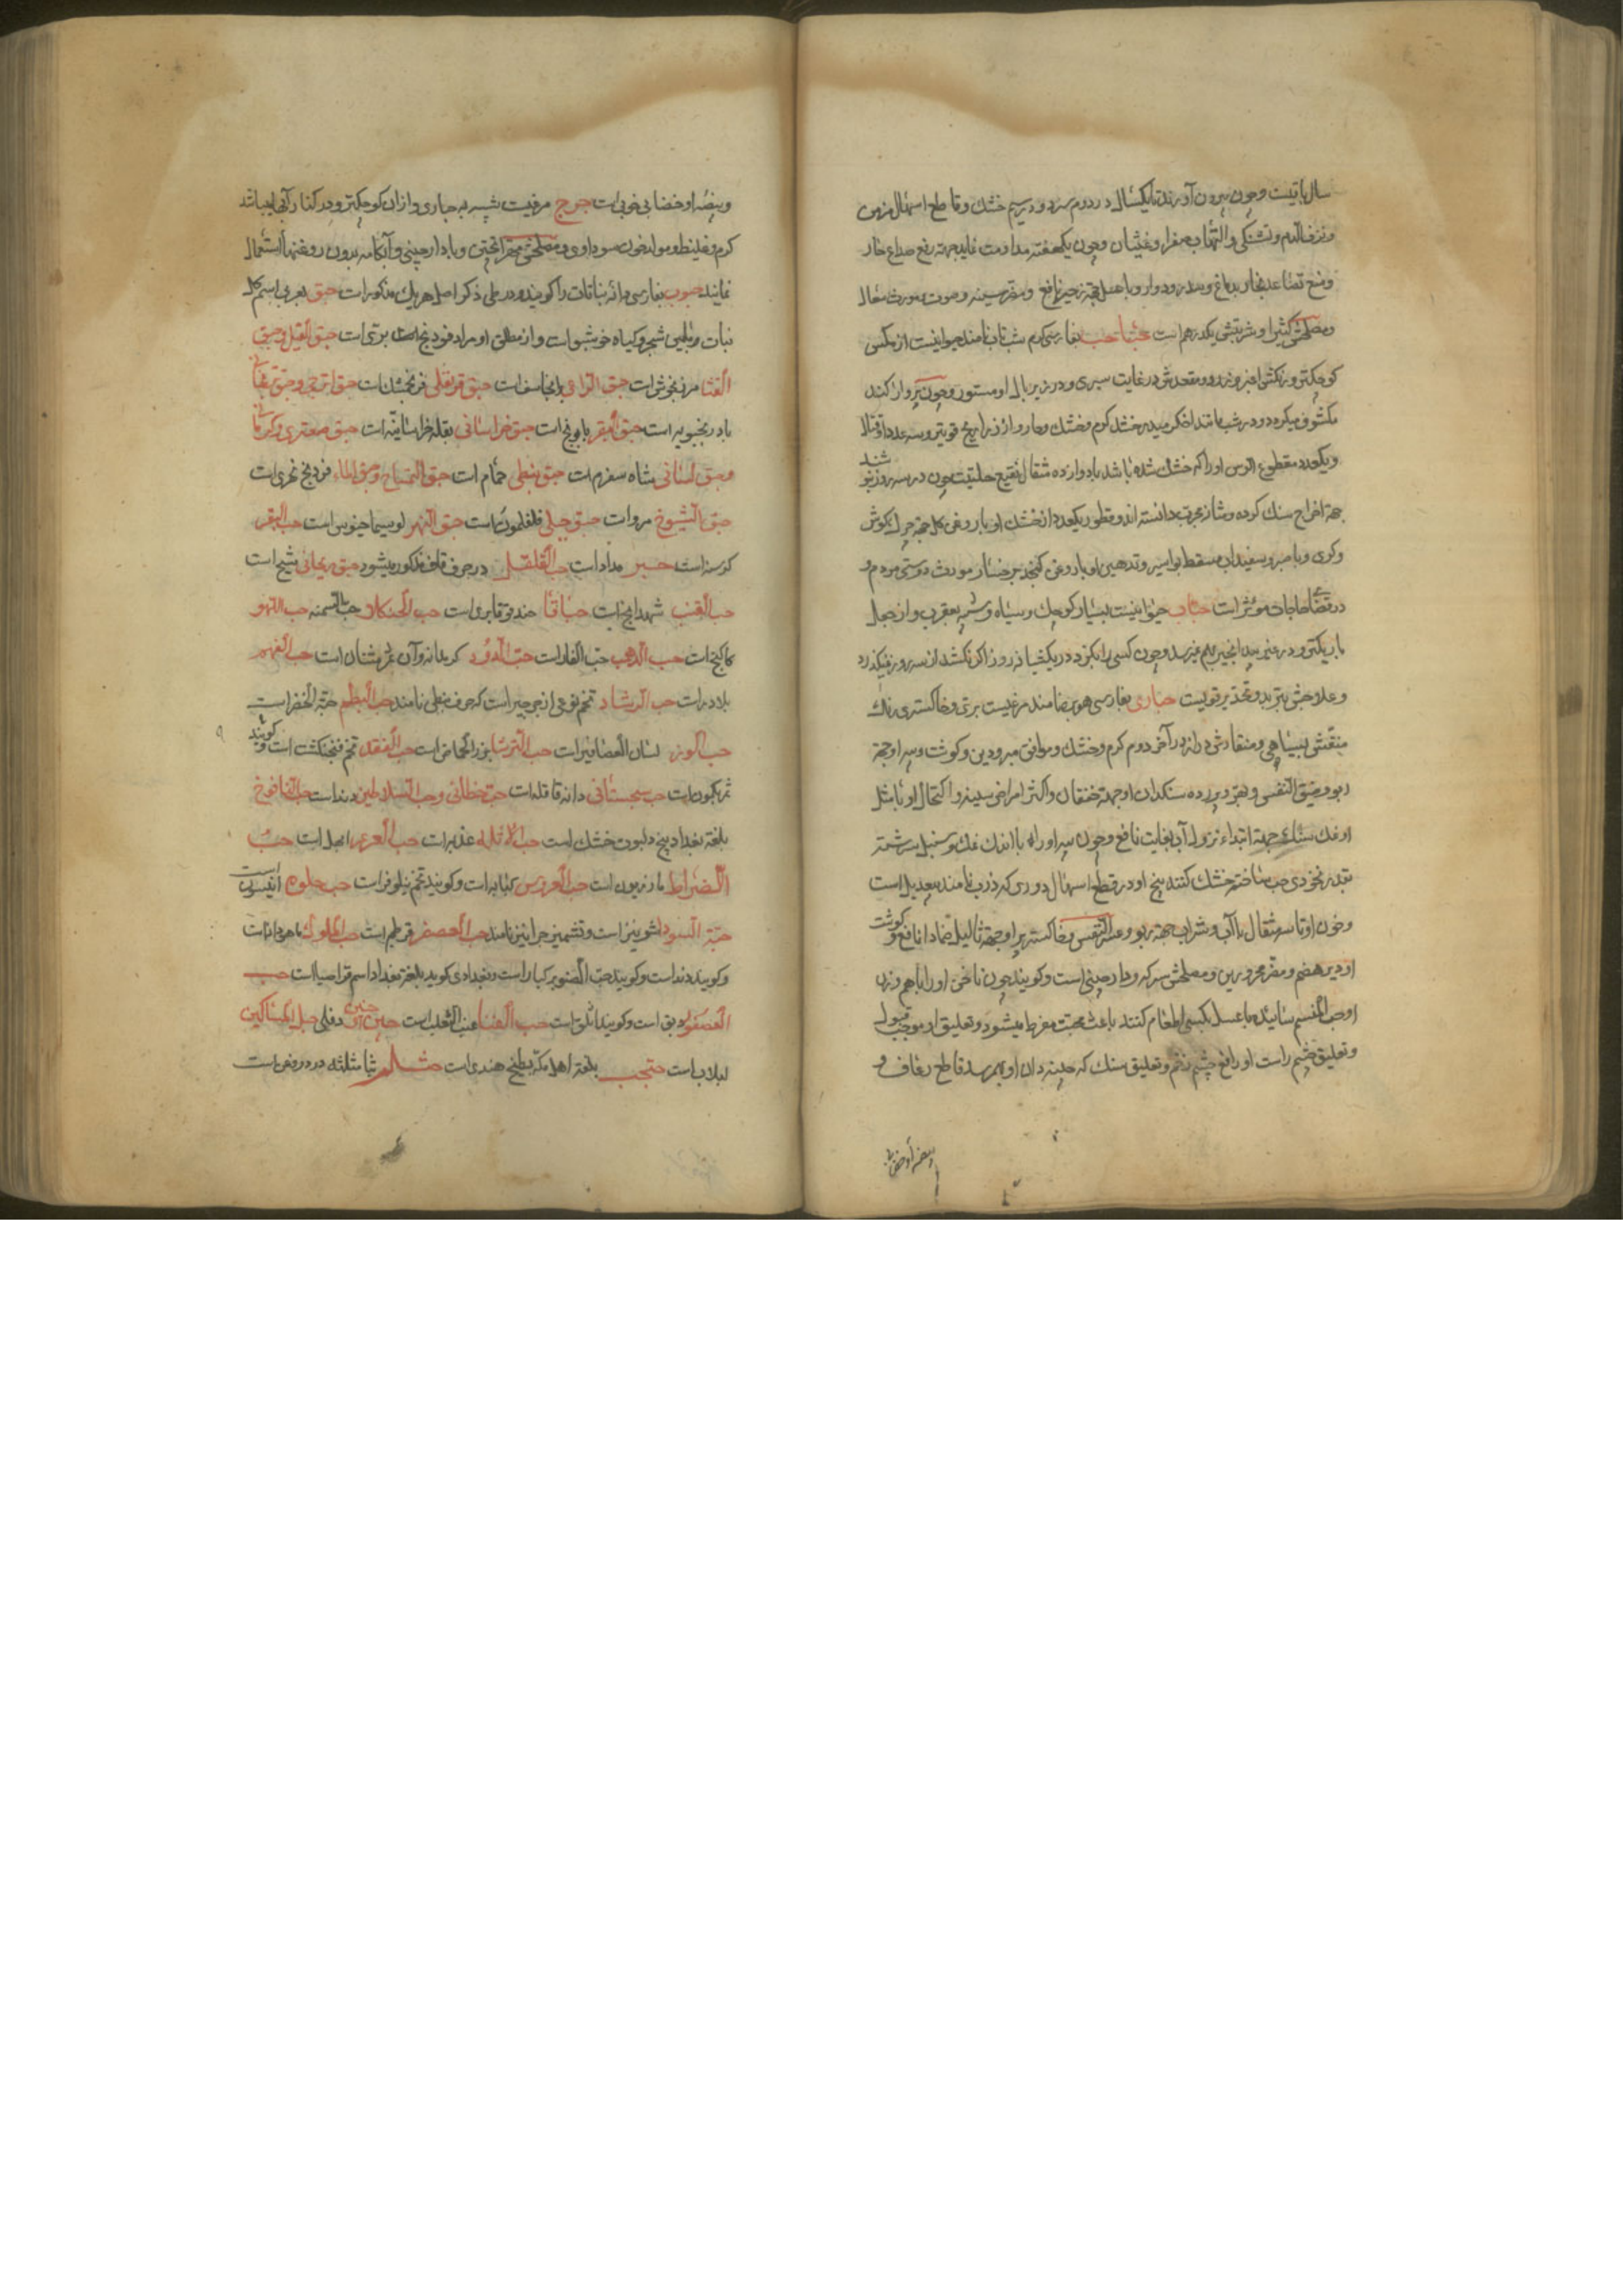 سال باقیست و چون بیرون آورند تا یکسال در دوم سرد و در سیم خشك و قاطع اسهال مزمن
و نزف الدم و تشنکی و التهاب صفرا و غثیان و چون یکهفته مداومت نماید جهة رفع صداع حار
و منع تصاعد بخار بدماغ و سدر و دوار و با عسل جهة زحیر نافع و مضر سینه و صوت مورث سعال
و مصلحش کثیرا و شربتش یکدرهم است حباحب بفارسی کرم شب تاب نامند حیوانیست از مکس
کوچکتر و رنکش اغبر و در غایت سبزی و در زیر بال او مستور و چون پرواز کند
مکشوف میکردد و در شب مانند اخکر میدرخشد کرم و خشك و حار و از ذراریح قویتر و سه عدد او قتال
و یکعدد مقطوع الرس او را که خشك شده باشد با دوازده مثقال نقیع حلتیت چون در سه روز بنوشند
جهة اخراج سنك کرده و مثانه مجرب دانسته اند و قطور یکعدد از خشك او با روغن کل جهة چرك کوش
و کری و با صبر و سفیداب مسقط بواسیر و تدهین او با روغن کنجد مورث دوستی مردم و
در قضای حاجات مؤثر است حباب حیوانیست بسیار کوچك و سیاه و شبیه بعقرب و از جعل
باریکتر و در غیر بید انجیر بهم نمیرسد و چون کسی را بکزد در یکشبانه روز اکر نکشد از سه روز نمیکذرد
و علاجش تبرید و تخدیر قویست حباری بفارسی هوبره نامند مرغیست بری و خاکستری رنك
منقش بسیاهی و منقارش دراز در آخر دوم کرم و خشك و موافق مبرودین و کوشت و پیه او جهة
ربو و ضیق النفس و بهر و پرده سنکدان او جهة خفقان و اکثر امراض سینه و اکتحال او با مثل
او نمك سنك جهة ابتداء نزول آب بغایت نافع و چون پیه او را با اندك نمك و سنبل سرشته
بقدر نخودی حب ساخته خشك کنند پنج او در قطع اسهال دوری که ذرب نامند بیعدیل است
و خون او تا سه مثقال با آب و شراب جهة ربو و عسر النفس و خاکستر پر او جهة ثآلیل ضمادا نافع و کوشت
او دیر هضم و مضر محرورین و مصلحش سرکه و دارچینی است و کویند چون ناخن او را با هم وزن
او حب النسم سائیده با عسل بکسی اطعام کنند باعث محبت مفرط میشود و تعلیق او موجب قبول
و تعلیق چشم راست او رافع چشم زخم و تعلیق سنك که چینه دان او بهم رسد قاطع رعاف و
و بیضه او خضابی
و بیضه او خضابی خوبی است حبرج مرغیست شبیه به حباری و از ان کوچکتر و در کنار آبها میباشد
کرم و غلیظ و مولد خون سوداوی و مصلحش مهرا پختن و با دارچینی و آبکامه بدون روغنها استعمال
نمایند حبوب بفارسی دانه نباتات را کویند و در طی ذکر اصل هریك مذکور است حبق بعربی اسم کل
نبات و بلیس شجر و کیاه خوشبو است و از مطلق او مراد فودنج است بری است حبق الفیل و حبق
القثا مرزنجوش است حبق الراعی برنجاسف است حبق قرنفلی فرنجمشك است حبق اترجی و حبق ترنجانی
بادرنجبویه است حبق البقر بابونج است حبق خراسانی بقله خراسانیه است حبق صعتری و کرمانی
و حبق لسانی شاه سفرم است حبق نبطی حمام است حبق التمساح و حبق الماء فودنج نهری است
حبق الشیوخ مرو است حبق جبلی فلفلمون است حبق النهر لوسیماخیوس است حب البقر
کرسنه است حبر مداد است حب القلقل در حرف قاف مذکور میشود حبق ریحانی شیح است
حب القنب شهدانج است حباقا حندقوقا بری است حب الحنکلا حب السمنه حب اللهو
کاکنج است حب الذهب حب الفار است حب الدود کرمدانه و آن ثمر مثنان است حب الفهم
بلادر است حب الرشاد تخم نوعی از جرجیر است که حرف نبطی نامند حب البطم حبة الخضرا است
حب الوز لسان العصافیر است حب الترشا بزر الحماض است حب الفقد تخم فنجنکشت است و کویند
ثمر کبوس است حب سجستانی دانه قاقله است حب خطائی و حب السلاطین دند است حب القافوخ
بلغة بغداد بیخ دلبوث خشك است حب الاثل عذبه است حب العرعر ابهل است حب
الضراط مازریون است حب العروس کبابه است و کویند تخم نیلوفر است حب حلوه انیسون است
حبة السودا شونیز است و تشمیزج را نیز نامند حب العصفر قرطم است حب الملوك ماهودانه است
و کویند دند است و کویند حب الصنوبر کبار است و بغدادی کوید بلغة بغداد اسم قراصیا است حب
العصفور دبق است و کویند اثلق است حب الفنا عنب الثعلب است حبن دفلی حبل المساکین
لبلاب است حتجب بلغة اهل مکه بطیخ هندی است حثـلـم بثا مثلثه دردی روغن است